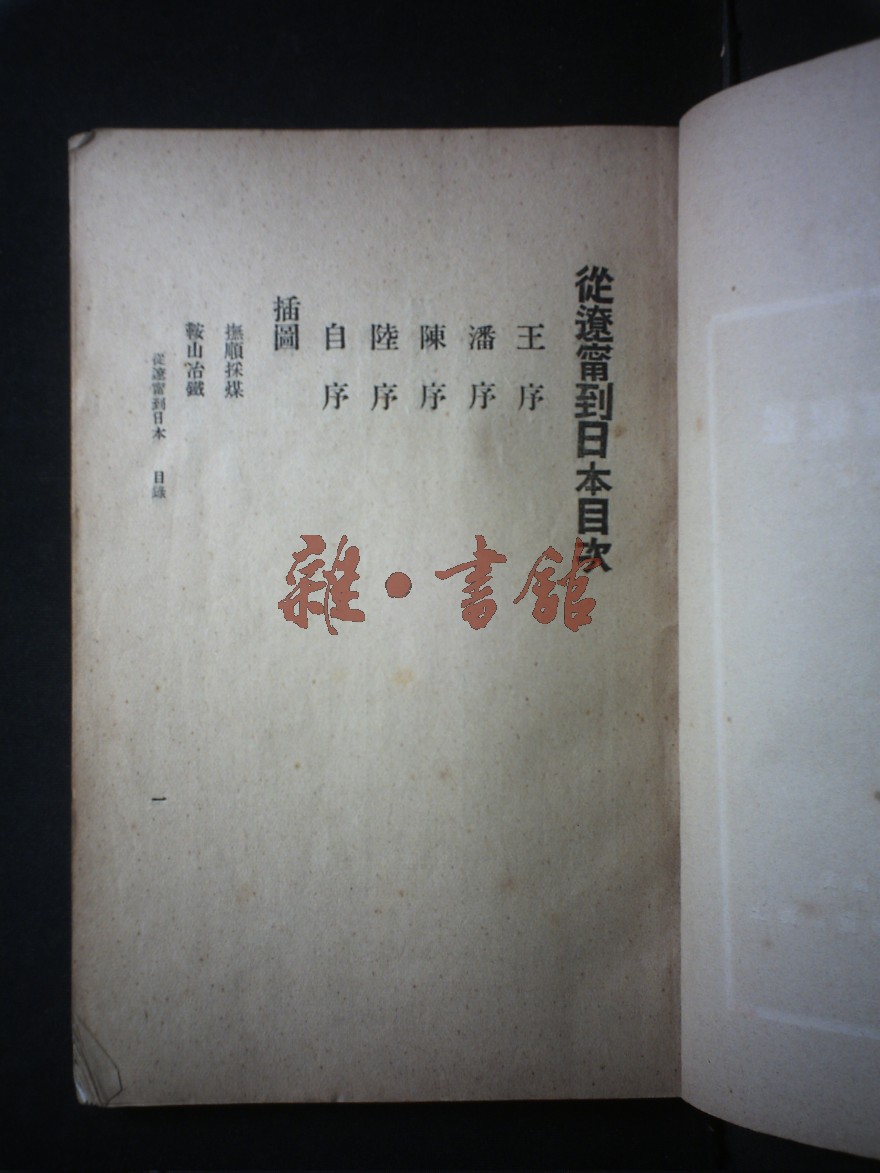 從遼甯到日本目次
王序
潘序
陳序
陸序
自序
插圖
撫順採煤
鞍山冶鐵
從遼甯到日本 目錄
一
雜·書館